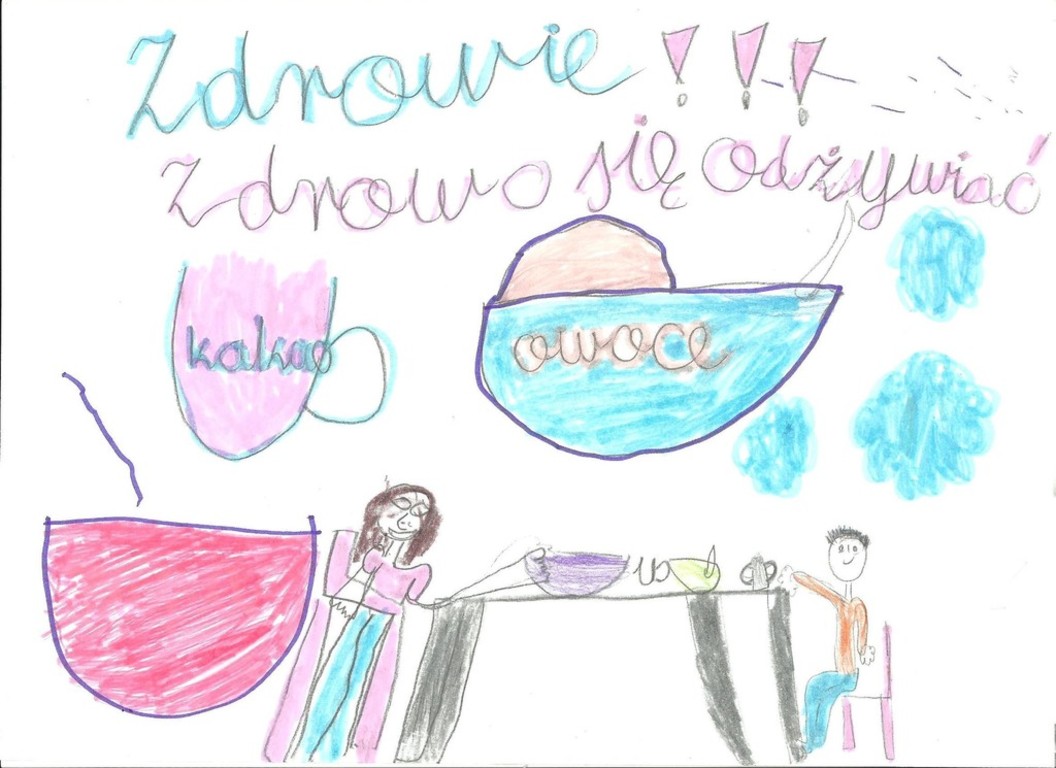 Zdrowie !!!
Zdrowo się odżywiać
kakao
owoce